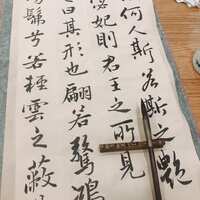 何人斯若斯之艷
宓妃則君王之所見
之曰其形也翩若驚鴻
髴兮若輕雲之蔽